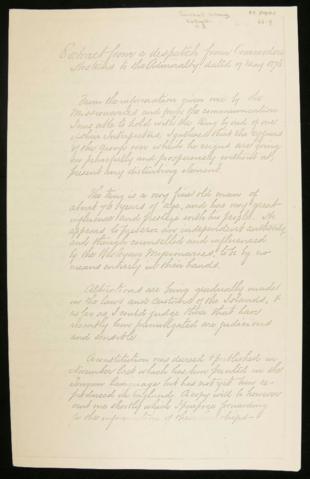 Extract from a despatch from Commodore
to the Admiralty dated 17 May 1876

From the information given me by the
Missionaries and from the communication
I was able to hold with the King by aid of one
of their Interpreters, I gathered that the affairs
of the group over which he reigns are going
on peacefully and prosperously without at
present any disturbing element.

The King is a very fine old man of
about 76 years of age, and has very great
influence and prestige with his people. He
appears to possess an independent authority
and though counselled and influenced
by the Wesleyan Missionaries, to be by no
means entirely in their hands.

Alterations are being gradually made
in the laws and customs of the Islands, &
as far as I could judge those that have
recently been promulgated are judicious
and sensible

A constitution was devised & published in
November last which has been printed in the
Tongan language but has not yet been
produced in English. A copy will be however
sent me shortly which I purpose forwarding
to the information of their